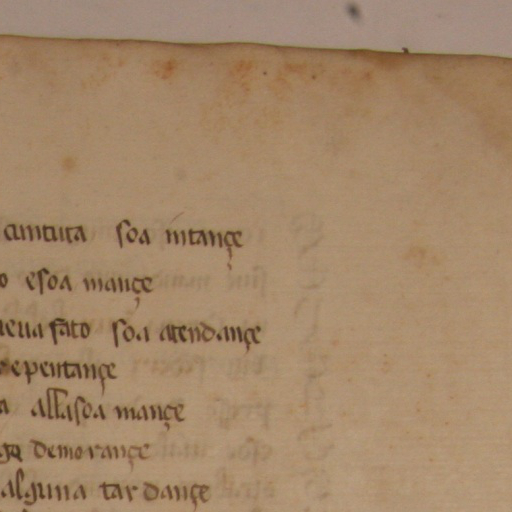 cuntuta soa intançe
o esoa mançe
neua fato soa atendançe
repentançe
a allasoa mançe
demorançe
alguna tardançe